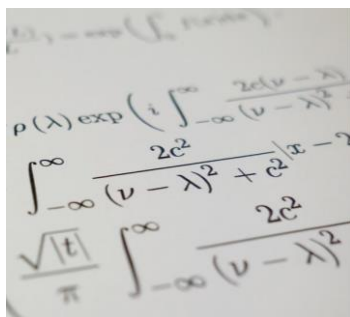 ρ(λ) exp ( i ∫_{-∞}^{∞} \frac{2c(ν − λ)}{(ν − λ)^2
∫_{-∞}^{∞} \frac{2c^2}{(ν − λ)^2 + c^2} |x − 2
\frac{\sqrt{|t|}}{π} ∫_{-∞}^{∞} \frac{2c^2}{(ν − λ)^2